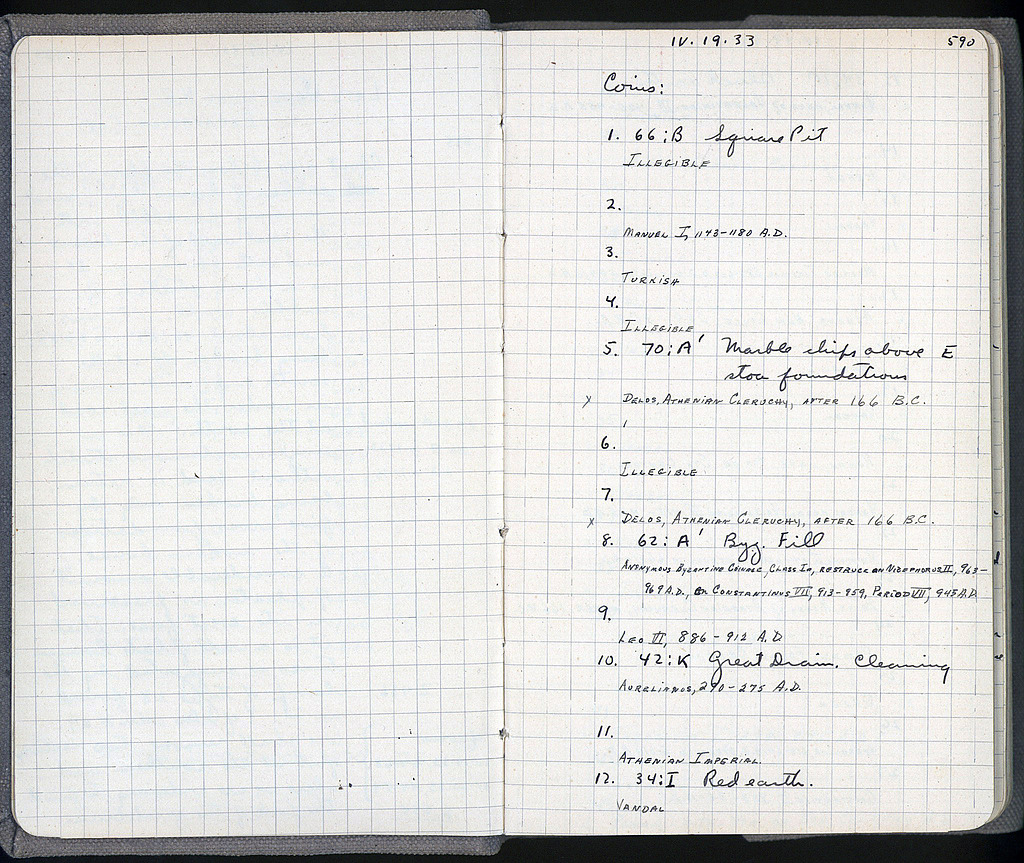 IV.19.33
590
Coins:
1. 66:B Square Pit
ILLEGIBLE
2.
MANUEL I, 1143-1180 A.D.
3.
TURKISH
4.
ILLEGIBLE
5. 70:A' Marble chips above E
stoa foundations
x DELOS, ATHENIAN CLERUCHY, AFTER 166 B.C.
6.
ILLEGIBLE
7.
x DELOS, ATHENIAN CLERUCHY, AFTER 166 B.C.
8. 62:A' Byz. Fill
ANONYMOUS BYZANTINE COINAGE, CLASS IA, RESTRUCK ON NICEPHORUS II, 963-
969 A.D., OR CONSTANTINUS VII, 913-959, PERIOD VII, 945 A.D.
9.
LEO VI, 886-912 A.D
10. 42:K Great Drain. Cleaning
AURELIANOS, 270-275 A.D.
11.
ATHENIAN IMPERIAL.
12. 34:I Red earth.
VANDAL